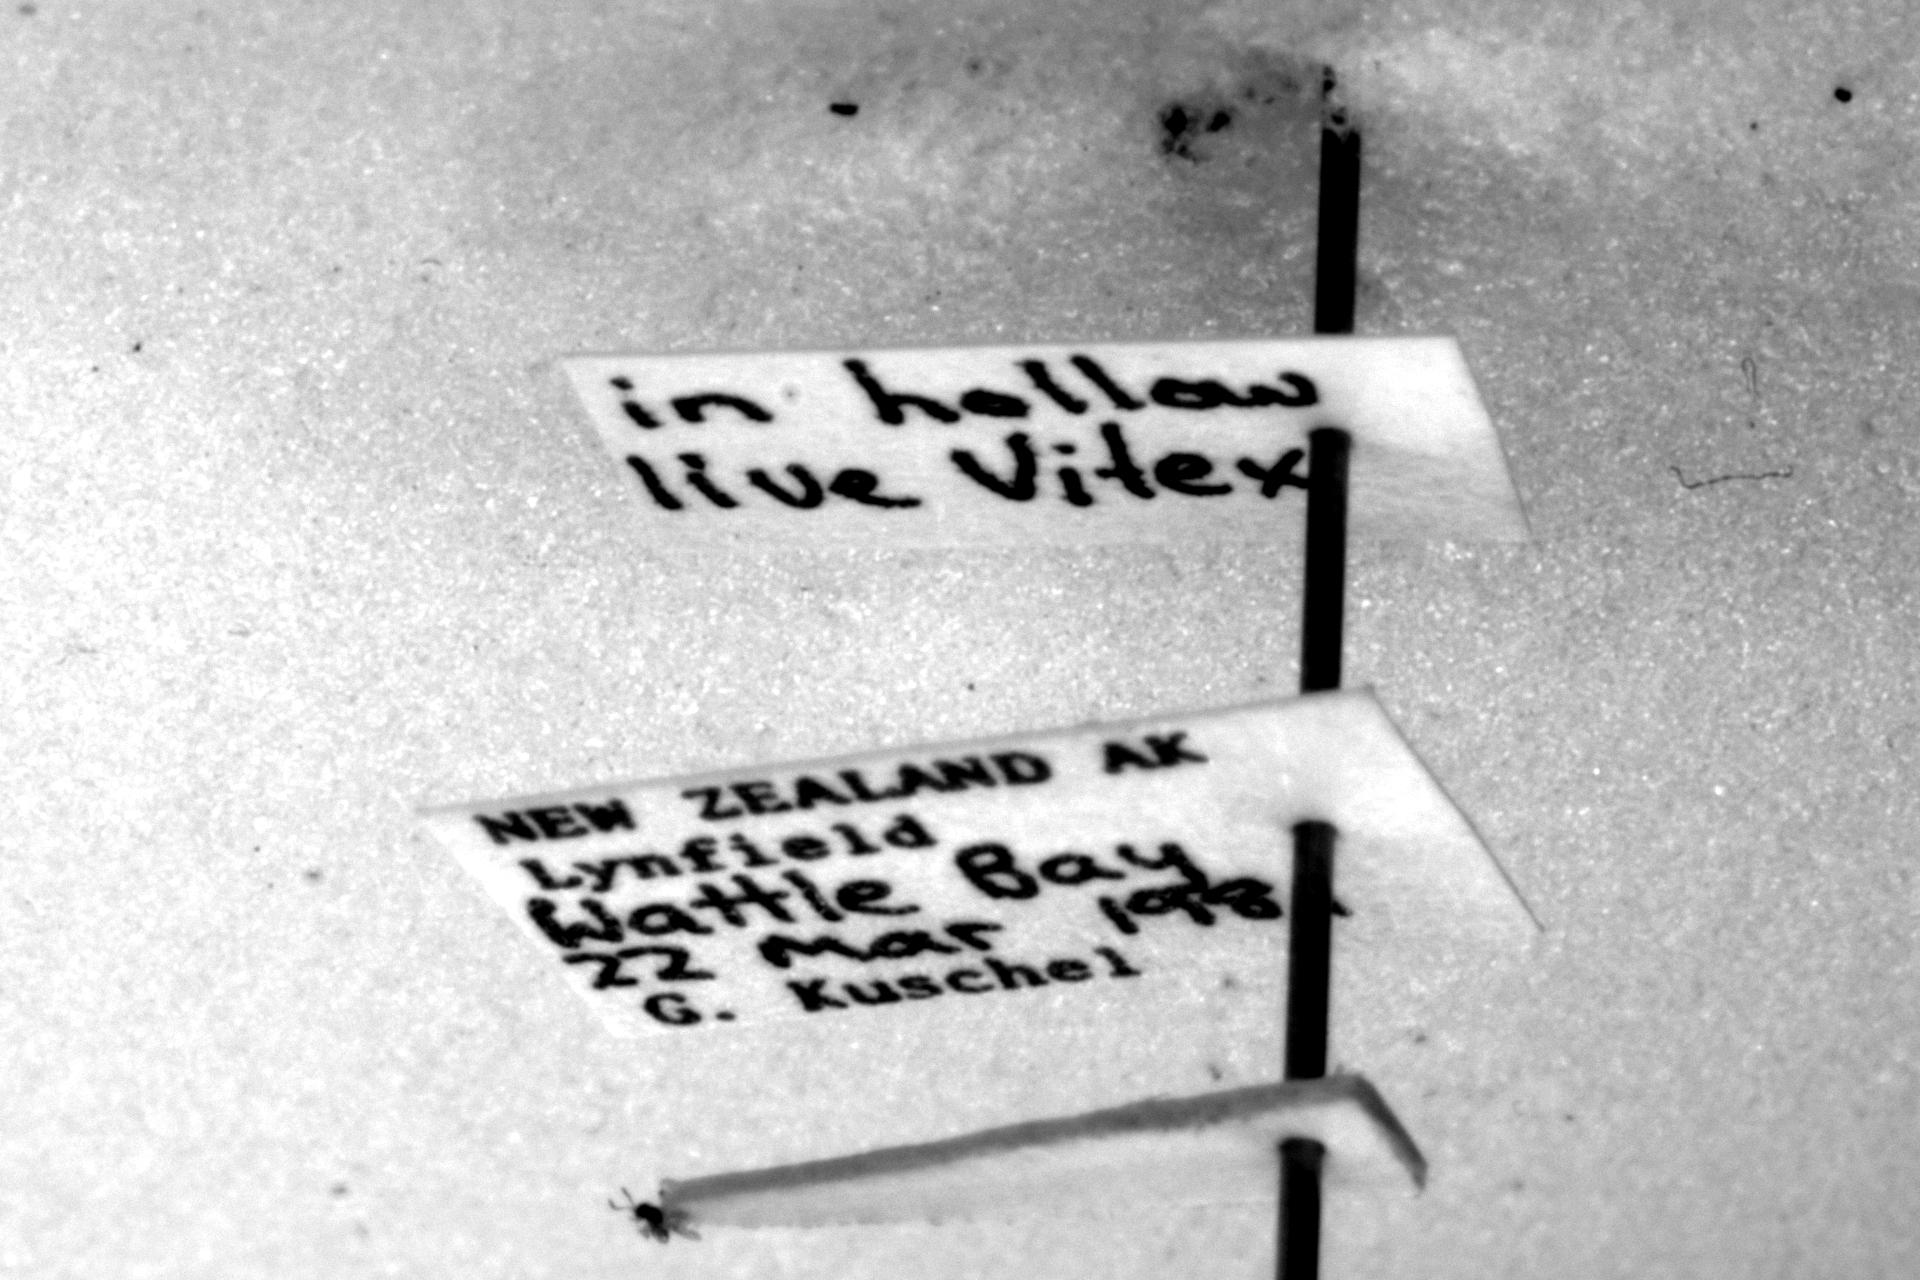 in hollow
live Vitex
NEW ZEALAND AK
Lynfield
Wattle Bay
22 Mar
G. Kuschel